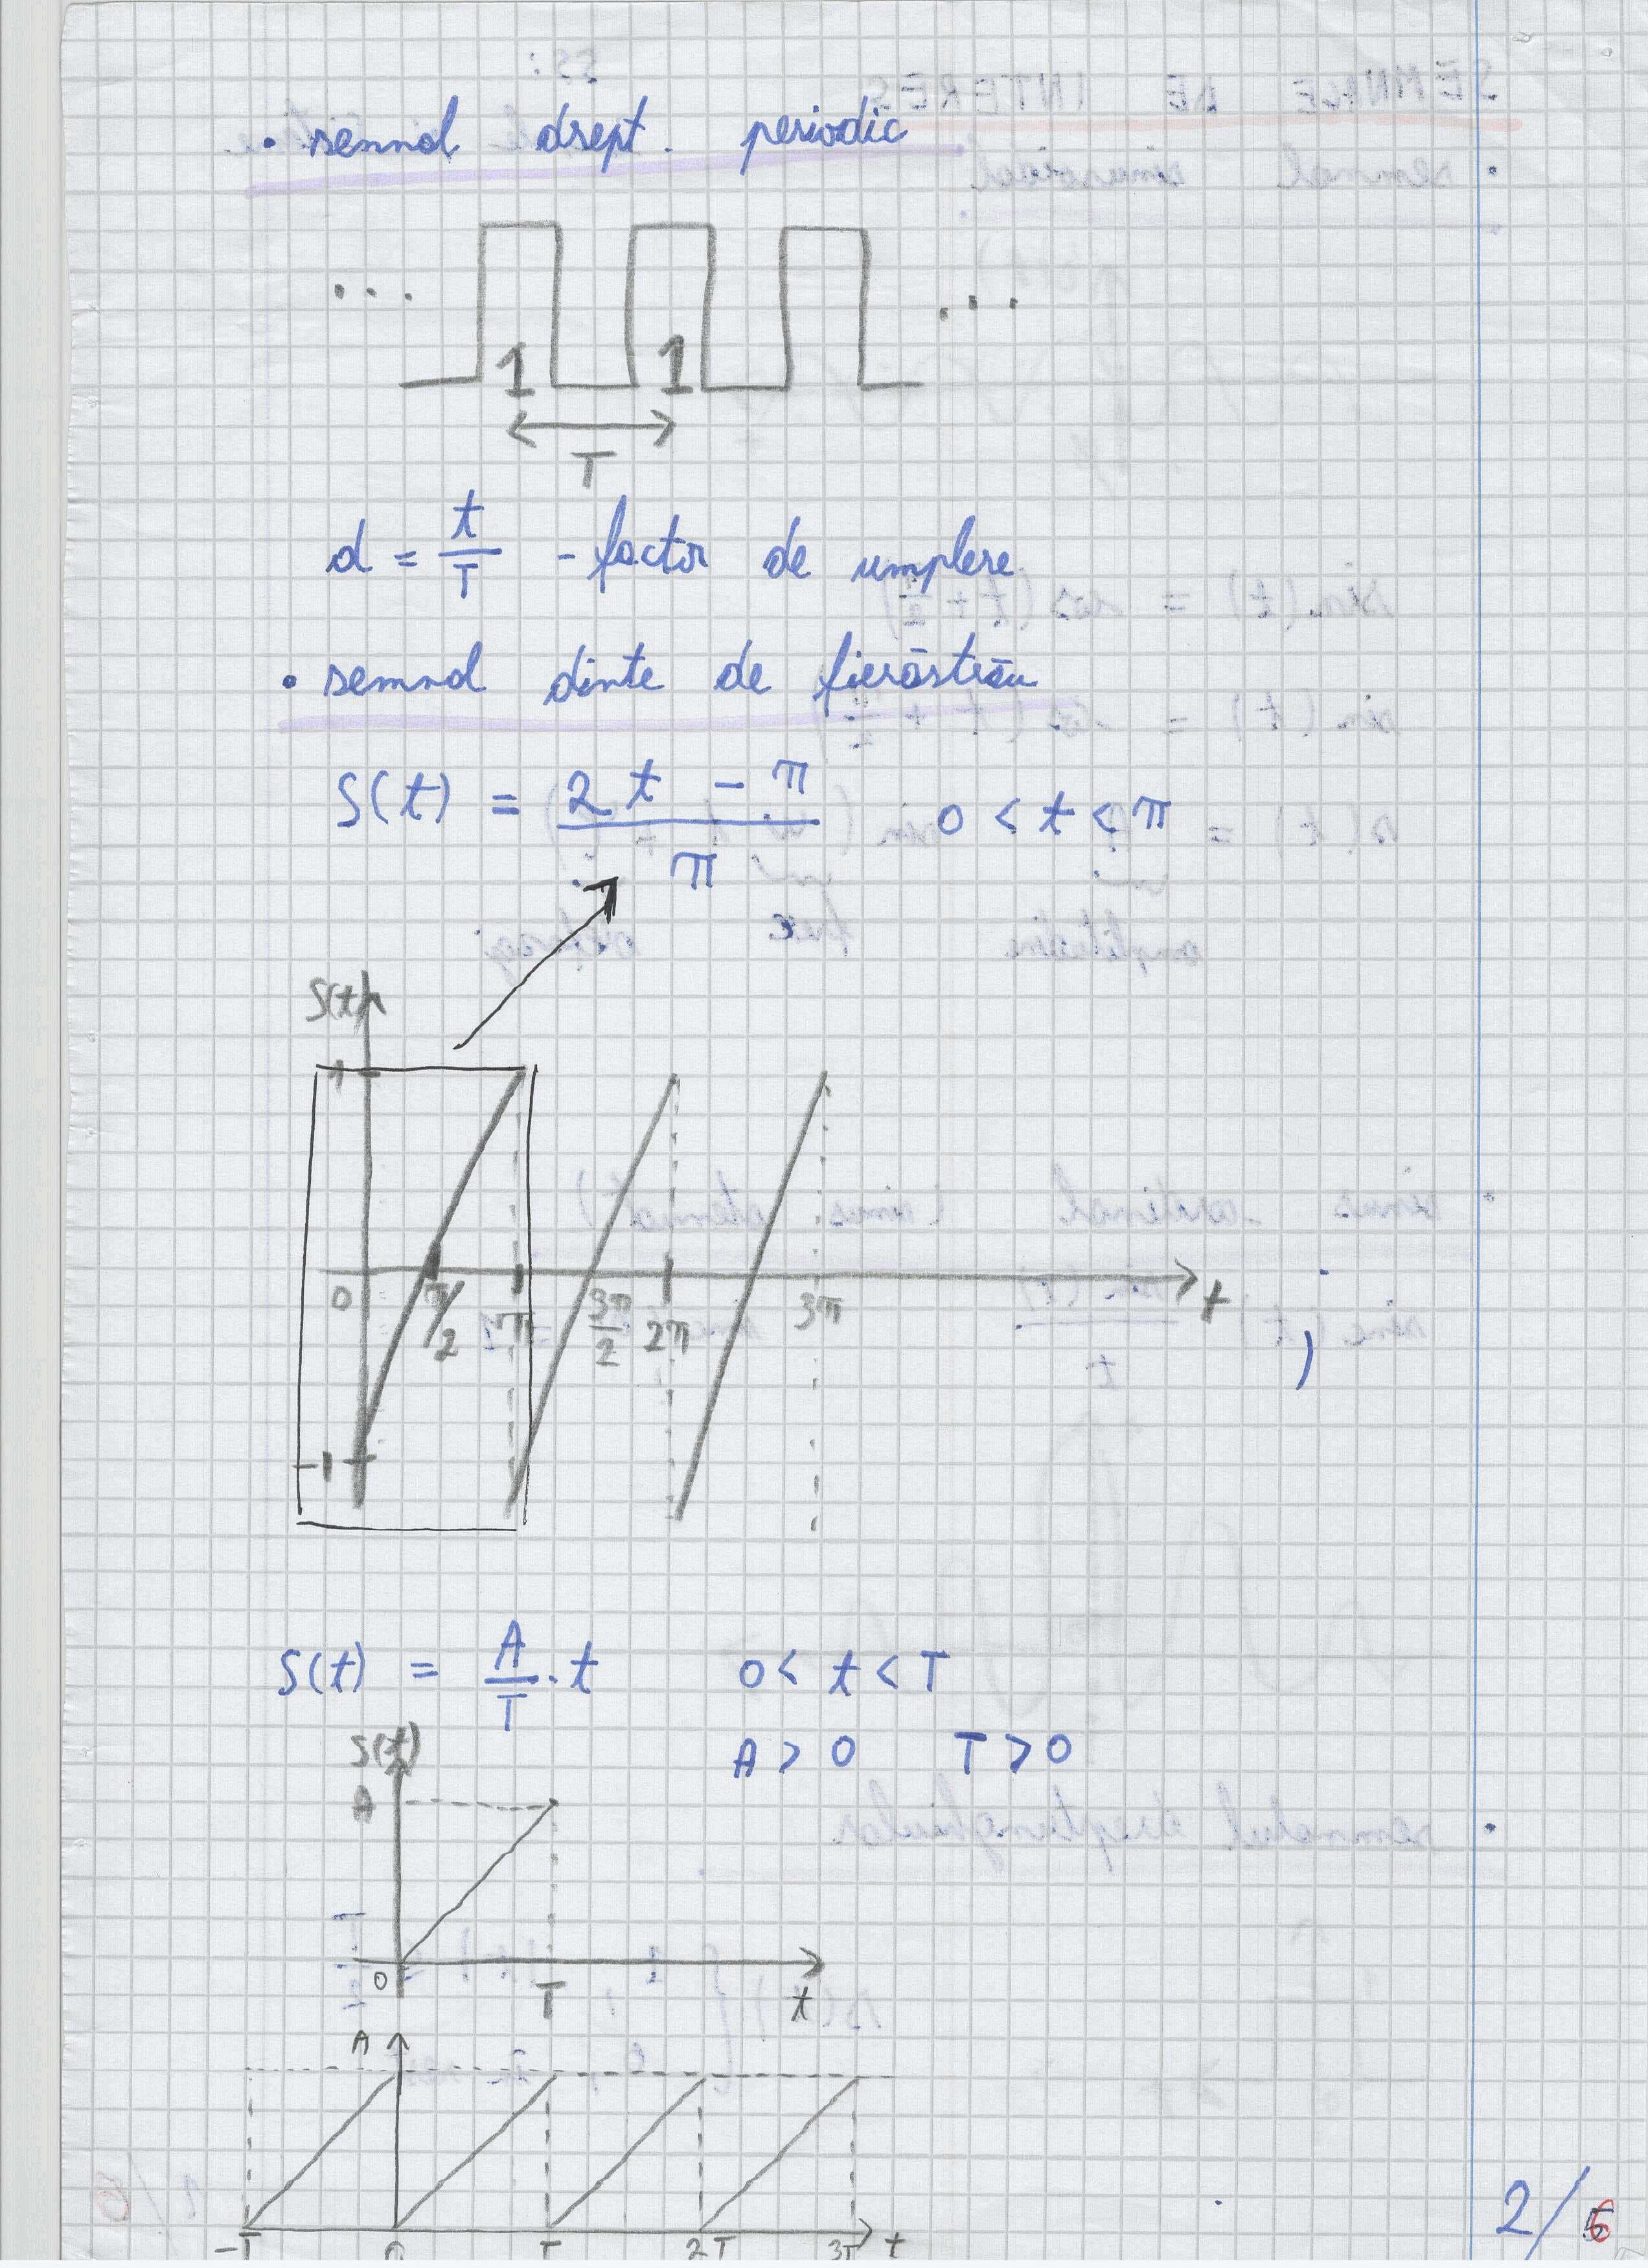 • semnal drept. periodic
... 1 1 ...
T
d = t/T - factor de umplere
• semnal dinte de fierăstrău
S(t) = (2t - π)/π 0 < t < π
S(t)
1
0 π/2 π 3π/2 2π 3π t
-1
S(t) = A/T · t 0 < t < T
A > 0 T > 0
S(t)
A
0 T t
A
-T 0 T 2T 3T t
2/6